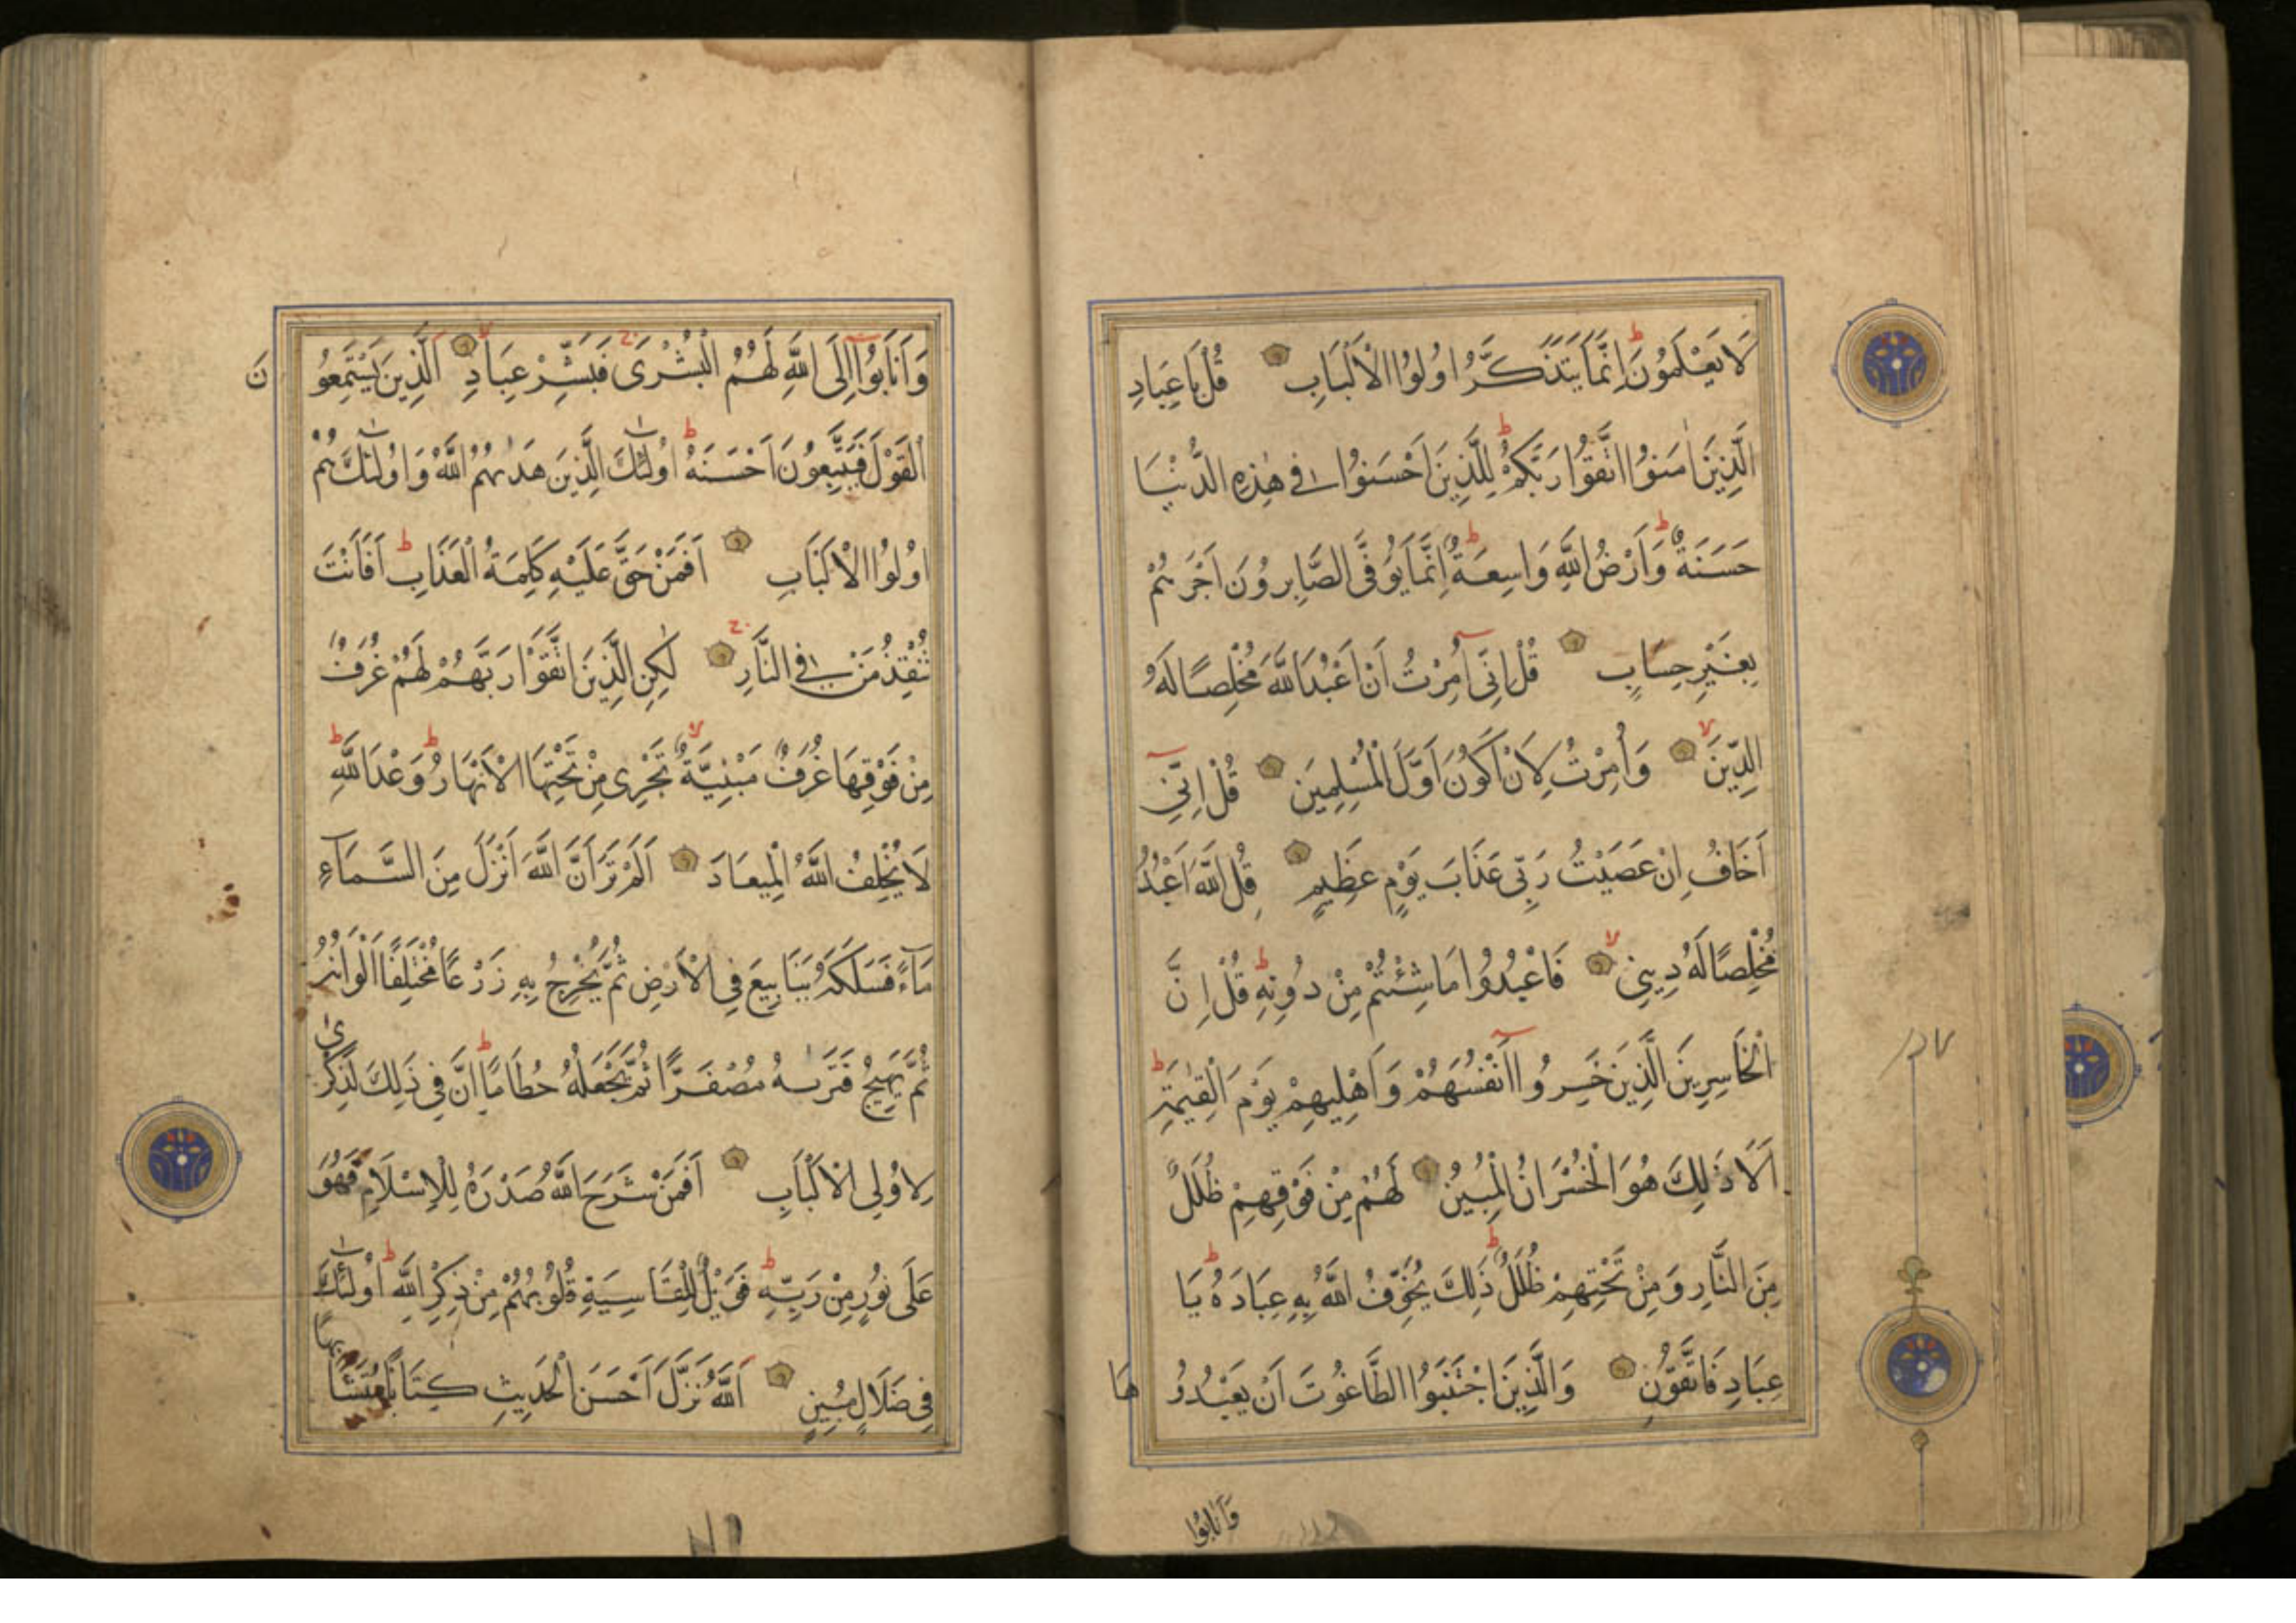 لَا يَعْلَمُونَ اِنَّمَا يَتَذَكَّرُ اُولُوا الْاَلْبَابِ قُلْ يَا عِبَادِ
الَّذِينَ اٰمَنُوا اتَّقُوا رَبَّكُمْ لِلَّذِينَ اَحْسَنُوا فِي هٰذِهِ الدُّنْيَا
حَسَنَةٌ وَاَرْضُ اللَّهِ وَاسِعَةٌ اِنَّمَا يُوَفَّى الصَّابِرُونَ اَجْرَهُمْ
بِغَيْرِ حِسَابٍ قُلْ اِنِّي اُمِرْتُ اَنْ اَعْبُدَ اللَّهَ مُخْلِصًا لَهُ
الدِّينَ وَاُمِرْتُ لِاَنْ اَكُونَ اَوَّلَ الْمُسْلِمِينَ قُلْ اِنِّي
اَخَافُ اِنْ عَصَيْتُ رَبِّي عَذَابَ يَوْمٍ عَظِيمٍ قُلِ اللَّهَ اَعْبُدُ
مُخْلِصًا لَهُ دِينِي فَاعْبُدُوا مَا شِئْتُمْ مِنْ دُونِهِ قُلْ اِنَّ
الْخَاسِرِينَ الَّذِينَ خَسِرُوا اَنْفُسَهُمْ وَاَهْلِيهِمْ يَوْمَ الْقِيٰمَةِ
اَلَا ذَلِكَ هُوَ الْخُسْرَانُ الْمُبِينُ لَهُمْ مِنْ فَوْقِهِمْ ظُلَلٌ
مِنَ النَّارِ وَمِنْ تَحْتِهِمْ ظُلَلٌ ذَلِكَ يُخَوِّفُ اللَّهُ بِهِ عِبَادَهُ يَا
عِبَادِ فَاتَّقُونِ وَالَّذِينَ اجْتَنَبُوا الطَّاغُوتَ اَنْ يَعْبُدُو هَا
وَاَنَابُوا
وَاَنَابُوا اِلَى اللَّهِ لَهُمُ الْبُشْرَى فَبَشِّرْ عِبَادِ الَّذِينَ يَسْتَمِعُو نَ
الْقَوْلَ فَيَتَّبِعُونَ اَحْسَنَهُ اُولٰئِكَ الَّذِينَ هَدٰيهُمُ اللَّهُ وَاُولٰئِكَ هُمْ
اُولُوا الْاَلْبَابِ اَفَمَنْ حَقَّ عَلَيْهِ كَلِمَةُ الْعَذَابِ اَفَاَنْتَ
تُنْقِذُ مَنْ فِي النَّارِ لٰكِنِ الَّذِينَ اتَّقَوْا رَبَّهُمْ لَهُمْ غُرَفٌ
مِنْ فَوْقِهَا غُرَفٌ مَبْنِيَّةٌ تَجْرِي مِنْ تَحْتِهَا الْاَنْهَارُ وَعْدَ اللَّهِ
لَا يُخْلِفُ اللَّهُ الْمِيعَادَ اَلَمْ تَرَ اَنَّ اللَّهَ اَنْزَلَ مِنَ السَّمَآءِ
مَآءً فَسَلَكَهُ يَنَابِيعَ فِي الْاَرْضِ ثُمَّ يُخْرِجُ بِهِ زَرْعًا مُخْتَلِفًا اَلْوَانُهُ
ثُمَّ يَهِيجُ فَتَرٰيهُ مُصْفَرًّا ثُمَّ يَجْعَلُهُ حُطَامًا اِنَّ فِي ذَلِكَ لَذِكْرٰى
لِاُولِي الْاَلْبَابِ اَفَمَنْ شَرَحَ اللَّهُ صَدْرَهُ لِلْاِسْلَامِ فَهُوَ
عَلَى نُورٍ مِنْ رَبِّهِ فَوَيْلٌ لِلْقَاسِيَةِ قُلُوبُهُمْ مِنْ ذِكْرِ اللَّهِ اُولٰئِكَ
فِي ضَلَالٍ مُبِينٍ اَللَّهُ نَزَّلَ اَحْسَنَ الْحَدِيثِ كِتَابًا مُتَشَابِهًا